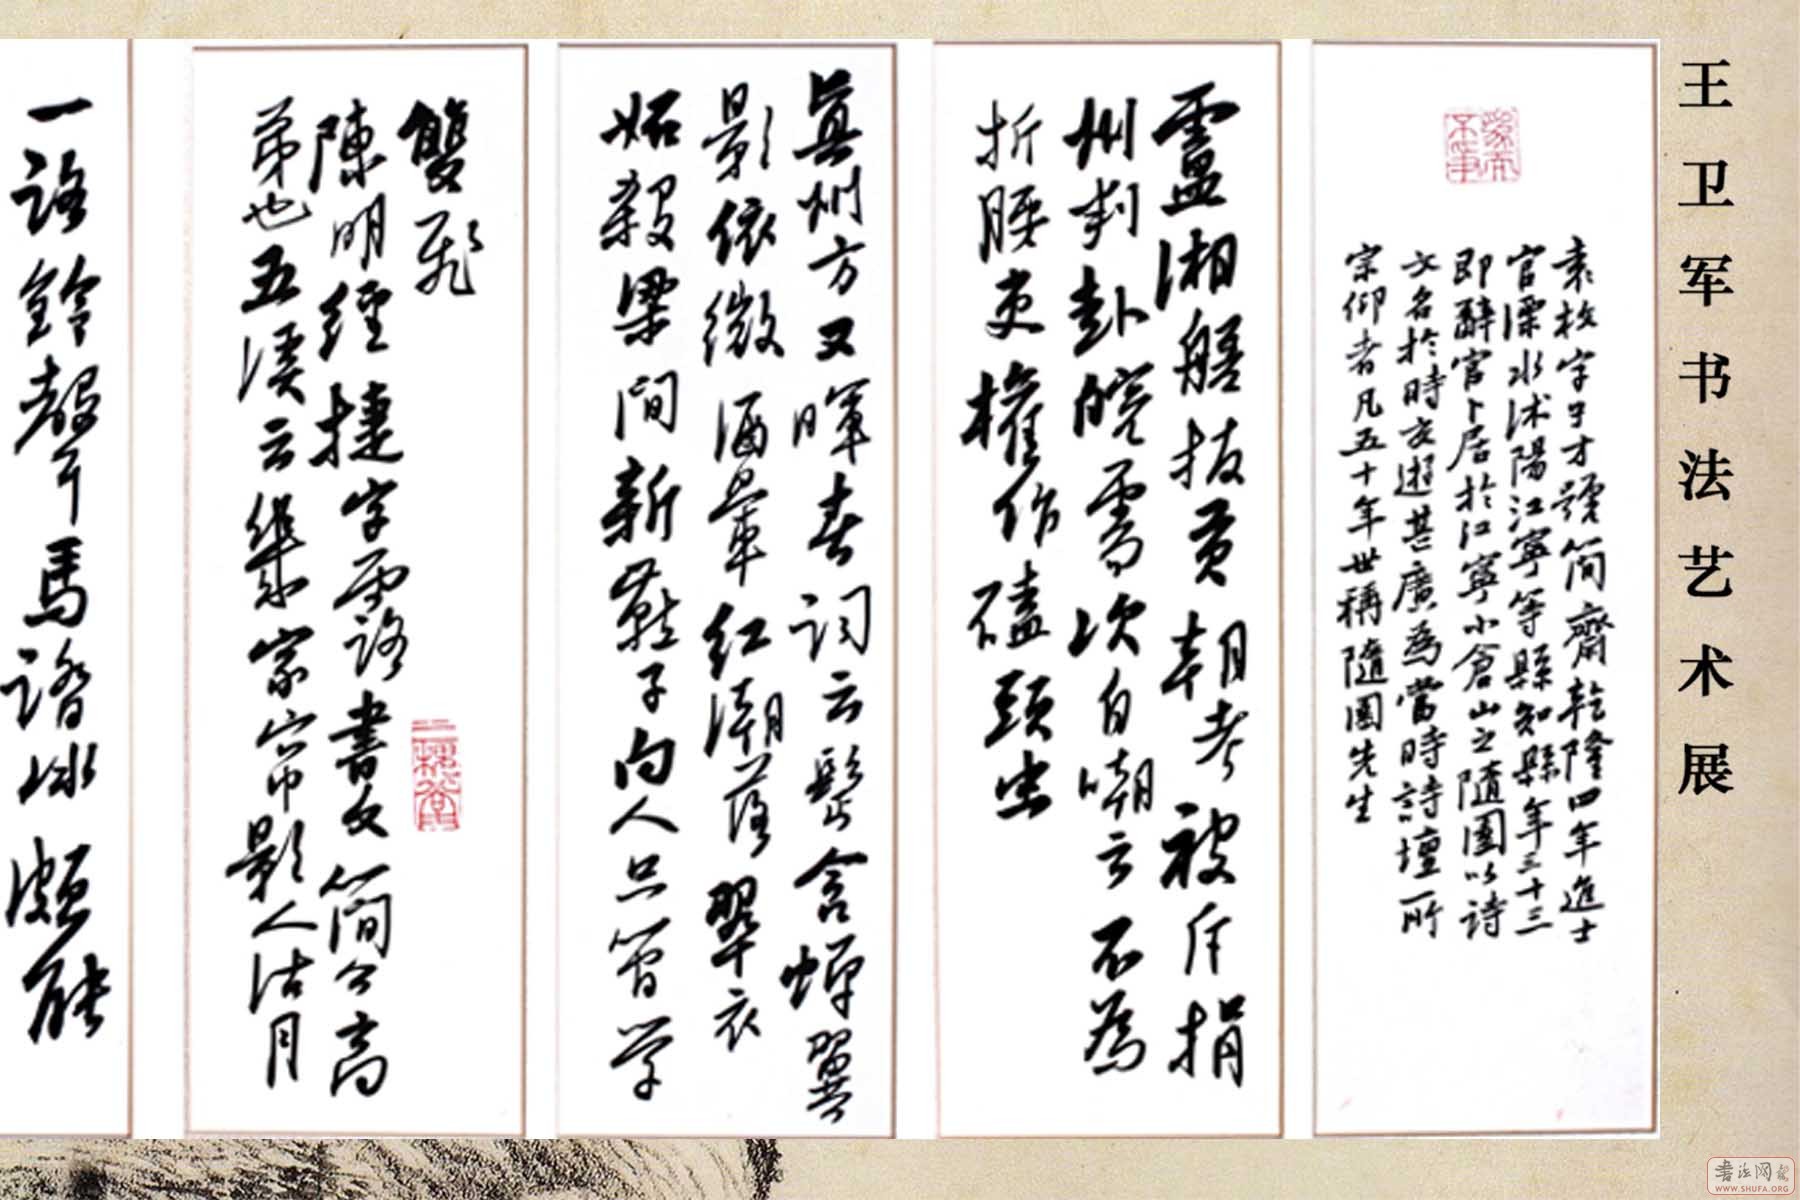 王卫军书法艺术展
袁枚字子才號簡齋乾隆四年進士
官溧水沭陽江寧等縣知縣年三十三
即辭官卜居於江寧小倉山之隨園以詩
文名於時交遊甚廣為當時詩壇所
宗仰者凡五十年世稱隨園先生
盧湘艖拔貢朝考被斥捐
州判赴皖需次自嘲云不為
折腰吏權作磕頭蟲
真州方又暉春詞云鬢含蟬翼
影依微酒暈紅潮落翠衣
妬殺梁間新燕子向人只管學
雙飛
陳明經捷字雲路書文簡公高
弟也五溪云集家帘影人沽月
一路鈴聲馬踏冰頗能
書法网
WWW.SHUFA.ORG